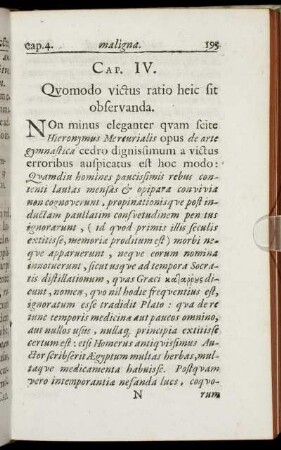 Cap. 4. maligna. 195
CAP. IV.
Qvomodo victus ratio heic sit
observanda.
NOn minus eleganter qvam scite
Hieronymus Mercurialis opus de arte
gymnastica cedro dignissimum a victus
erroribus auspicatus est hoc modo:
Quamdiu homines paucissimis rebus con-
tenti lautas mensas & opipara convivia
non cognoverunt, propinationisque post in-
ductam paullatim consvetudinem penitus
ignorarunt, (id quod primis illis seculis
extitisse, memoriæ proditum est) morbi ne-
que apparuerunt, neque eorum nomina
innotuerunt, sicut usque ad tempora Socra-
tis distillationum, quas Græci κατάῤῥους di-
cunt, nomen, quo nil hodie frequentius est,
ignoratum esse tradidit Plato: qua de re
tunc temporis medicinæ aut paucos omnino,
aut nullos usus, nullaq; principia extitisse
certum est: etsi Homerus antiqvissimus Au-
ctor scribserit Ægyptum multas herbas, mul-
taque medicamenta habuisse. Postqvam
vero intemperantia nefanda lues, coqvo-
N rum